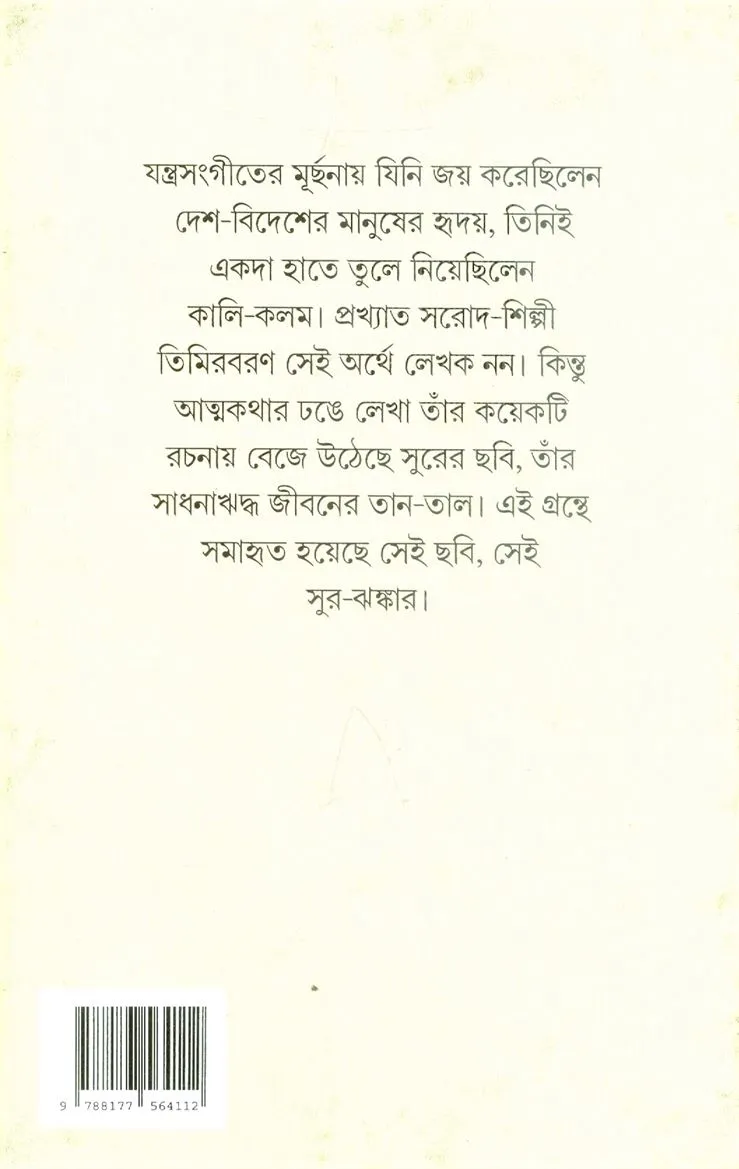 যন্ত্রসংগীতের মূর্ছনায় যিনি জয় করেছিলেন
দেশ-বিদেশের মানুষের হৃদয়, তিনিই
একদা হাতে তুলে নিয়েছিলেন
কালি-কলম। প্রখ্যাত সরোদ-শিল্পী
তিমিরবরণ সেই অর্থে লেখক নন। কিন্তু
আত্মকথার ঢঙে লেখা তাঁর কয়েকটি
রচনায় বেজে উঠেছে সুরের ছবি, তাঁর
সাধনাঋদ্ধ জীবনের তান-তাল। এই গ্রন্থে
সমাহৃত হয়েছে সেই ছবি, সেই
সুর-ঝঙ্কার।
9 788177 564112